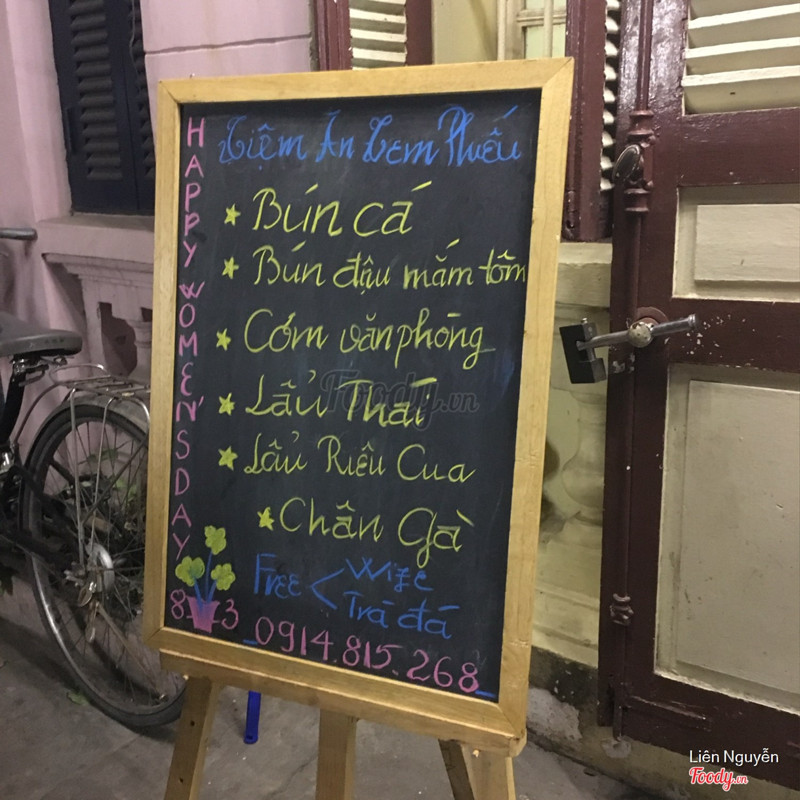 HAPPY WOMEN'S DAY
Tiệm Ăn Tem Phiếu
Bún cá
Bún đậu mắm tôm
Cơm văn phòng
Lẩu Thái
Lẩu Riêu Cua
Chân Gà
Free < Wife
Trà đá
8-3
0914.815.268
Foody.vn
Liên Nguyễn
Foody.vn